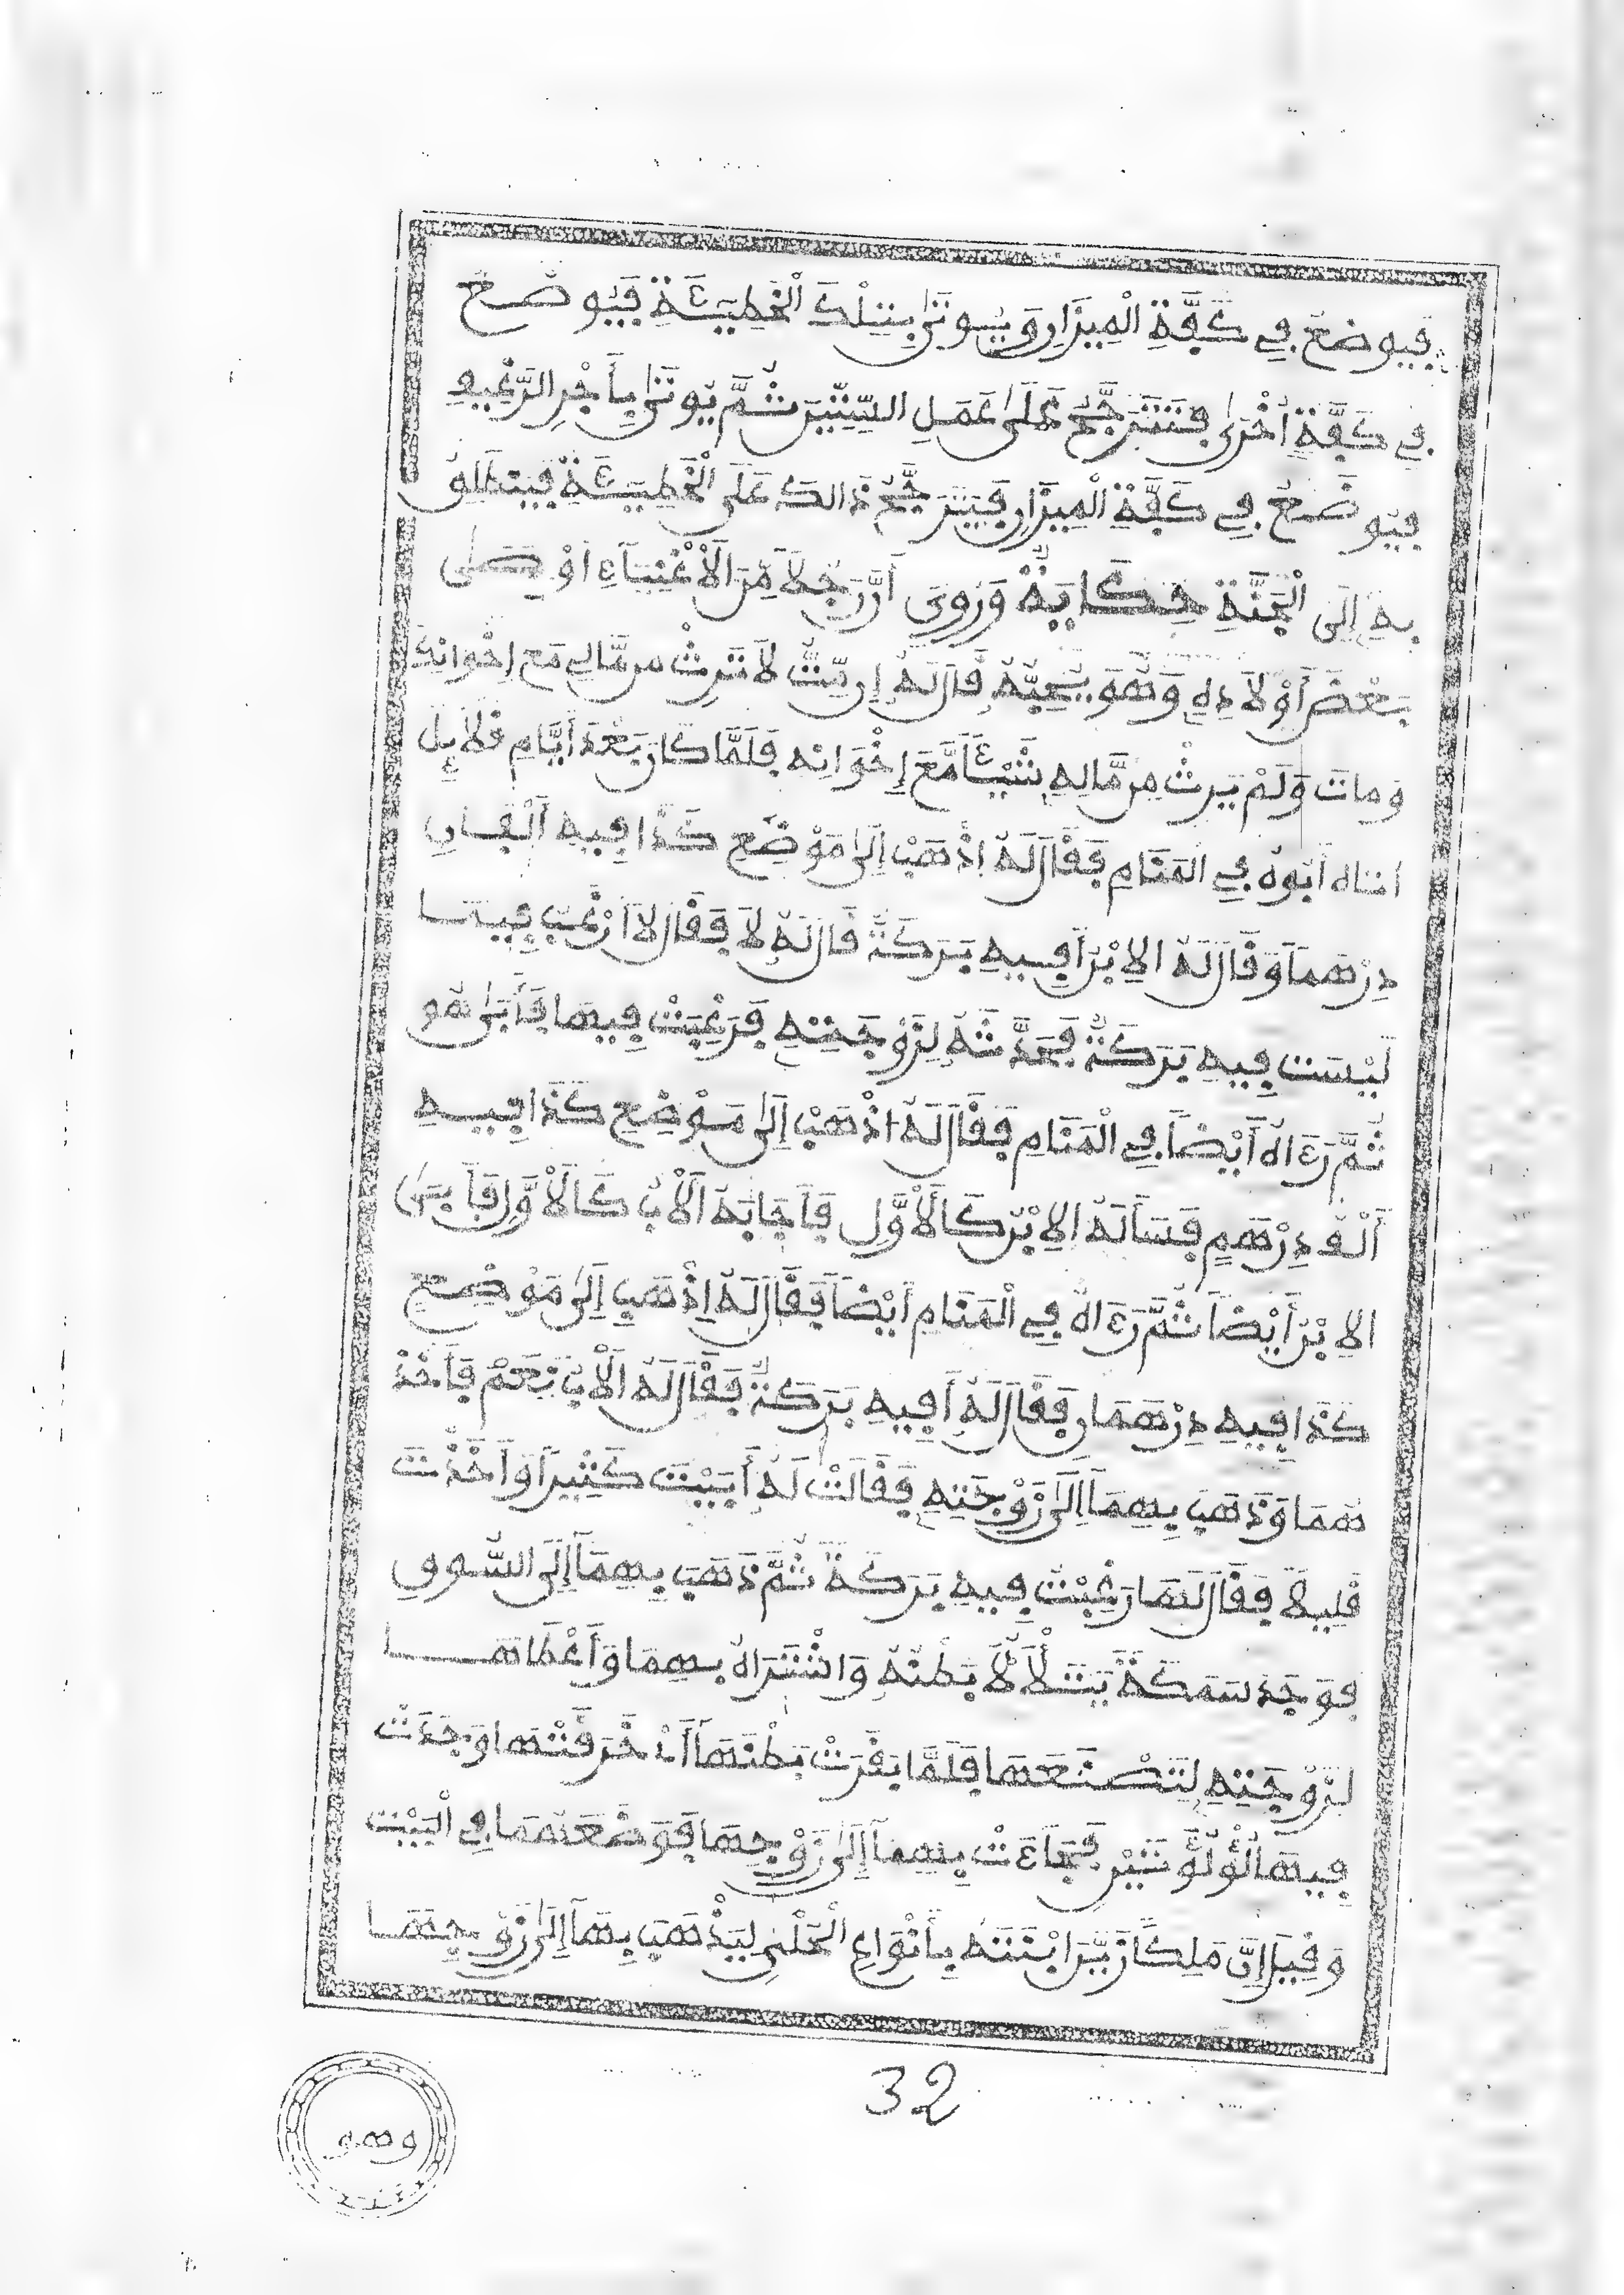 فيوضع في كفة الميزان ويوتى بتلك الخطيئة فيوضع
في كفة أخرى فتترجح على عمل الستين ثم يوتى بأجر الرغيف
فيوضع في كفة الميزان فيترجح ذالك على الخطيئة فينطلق
به إلى الجنة حكاية وروي أن رجلا من الأغنياء أوصى
بعض أولاده وهو يحبه قال له إن مت لا ترث من مالي مع إخوانك
ومات ولم يرث من ماله شيئا مع إخوانه فلما كان بعد أيام قلائل
اتاه أبوه في المنام فقال له اذهب إلى موضع كذا فيه ألفان
درهما وقال له الابن أفيه بركة قال له لا فقال لا أرغب فيما
ليست فيه بركة فحدثه لزوجته فرغبت فيها فأبى هو
ثم رءاه أيضا في المنام فقال له اذهب إلى موضع كذا فيه
ألف درهم فسأله الابن كالأول فأجابه الأب كالأول فأبى
الابن أيضا ثم رءاه في المنام أيضا فقال له اذهب إلى موضع
كذا فيه درهمان فقال له أفيه بركة فقال له الأب نعم فأخذ
هما وذهب بهما إلى زوجته فقالت له أبيت كثيرا وأخذت
قليلا فقال لها رغبت فيه بركة ثم ذهب بهما إلى السوق
فوجد سمكة يتلألأ بطنه واشتراه بهما وأعطاها
لزوجته لتصنعها فلما بقرت بطنها أخرقتها وجدت
فيها لؤلؤتين فجاءت بهما إلى زوجها فوضعتهما في البيت
وقيل إن ملكا زين ابنته بأنواع الحلي ليذهب بها إلى زوجها
32
وهو